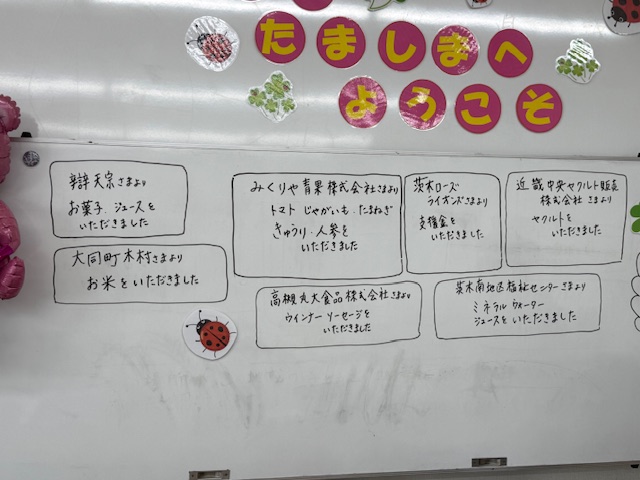 たましまへ
ようこそ
辯天宗さまより
お菓子.ジュースを
いただきました
大同町木村さまより
お米をいただきました
みくりや青果株式会社さまより
トマト じゃがいも.たまねぎ
きゅうり.人参を
いただきました
茨木ローズ
ライオンズさまより
支援金を
いただきました
近畿中央ヤクルト販売
株式会社さまより
ヤクルトを
いただきました
高槻丸大食品株式会社さまより
ウインナーソーセージを
いただきました
茨木南地区福祉センターさまより
ミネラルウォーター
ジュースをいただきました